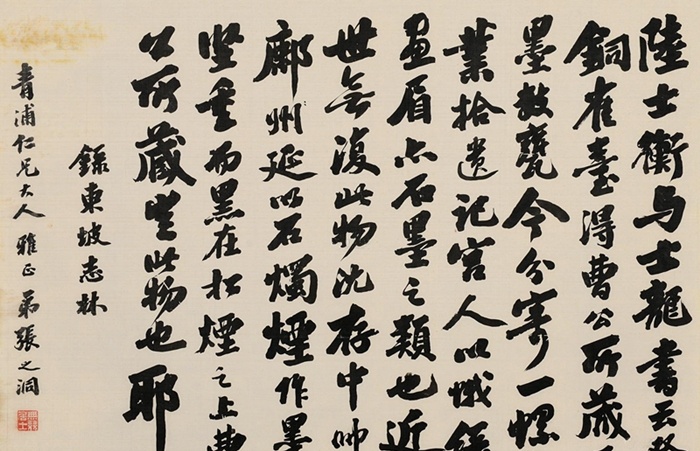 陸士衡与士龍書云
銅雀臺得曹公所藏
墨數甕今分寄一螺
業拾遺記宮人以蛾綠
畫眉亦石墨之類也近
世無復此物沈存中帥
鄜州延以石燭煙作墨
堅重而黑在松煙之上曹
公所藏豈此物也耶
錄東坡志林
青浦仁兄大人 雅正 弟張之洞